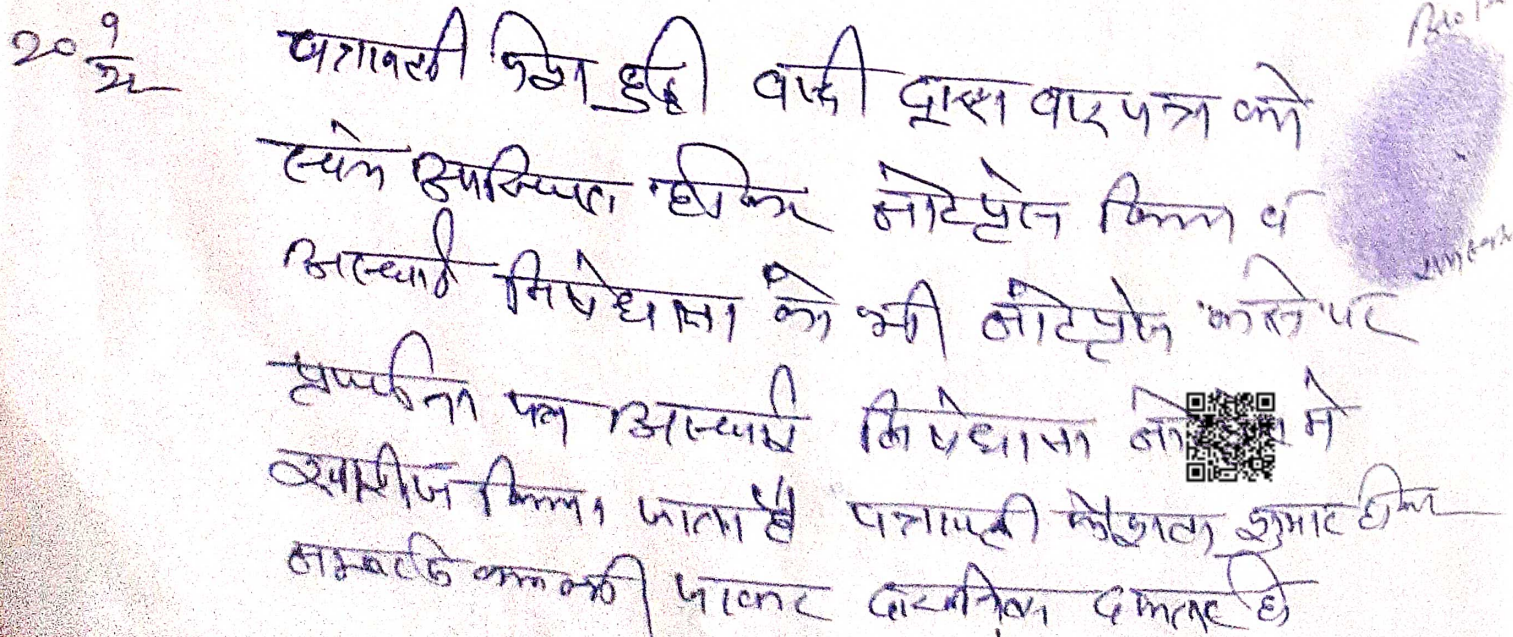 २० १/२२
पत्रावली पेश हुई वादी द्वारा वाद पत्र को
स्वंम उपस्थित होकर नोटप्रेस किया व
अस्थाई निषेधाज्ञा को भी नोटप्रेस करने पर
प्रार्थना पत्र अस्थाई निषेधाज्ञा में
खारीज किया जाता है पत्रावली फैशल शुमार होकर
नम्बर से कम की जाकर दाखिल दफ्तर हो